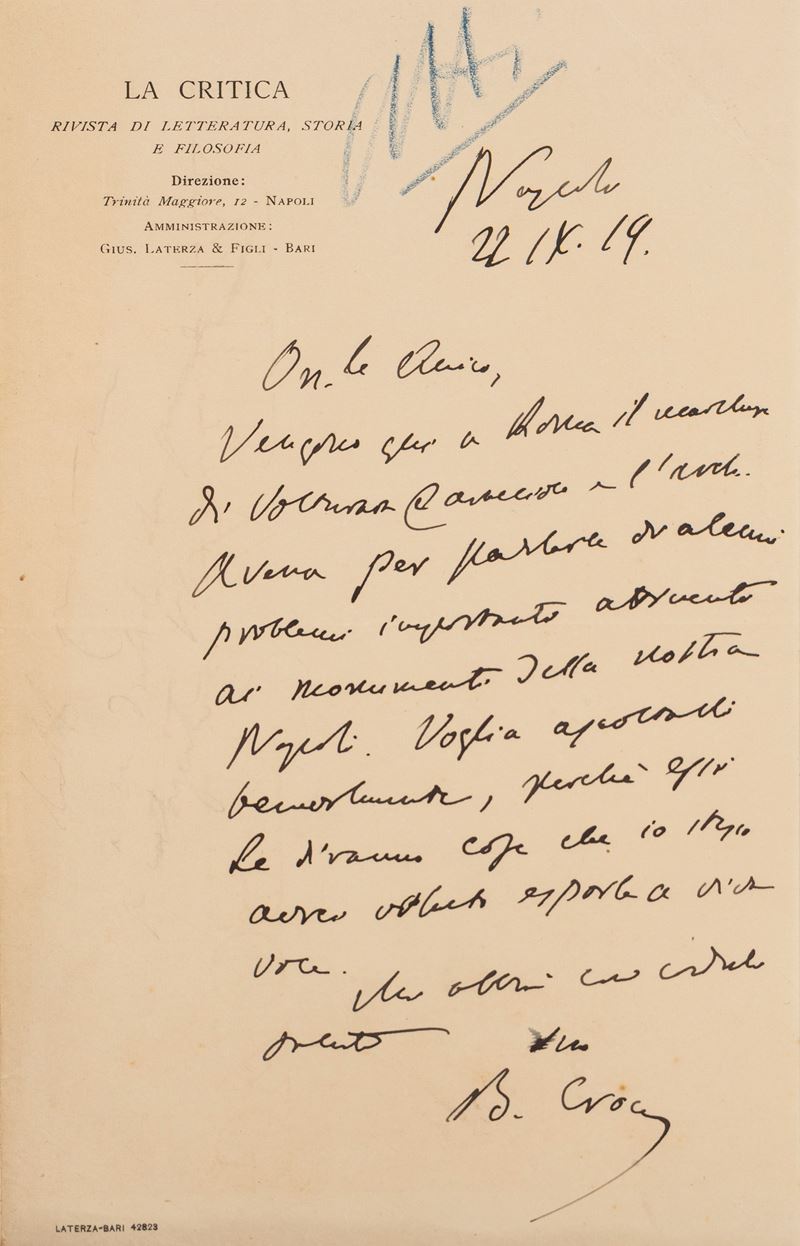 LA CRITICA
RIVISTA DI LETTERATURA, STORIA
E FILOSOFIA
Direzione:
Trinità Maggiore, 12 - NAPOLI
AMMINISTRAZIONE:
GIUS. LATERZA & FIGLI - BARI
Atti
Napoli
22 IX. 19.
On.le Amico,
Vengono qui a Roma il marchese
di Volturara Caracciolo e l'arch.
Avena per parlarle di alcuni
problemi importanti attinenti
ai monumenti della nostra
Napoli. Voglia ascoltarli
benevolmente, perchè essi
Le diranno cose che io stesso
avrei voluto esporle a viva
voce.
Mi abbia con cordiale
saluto suo
B. Croce
LATERZA-BARI 42823